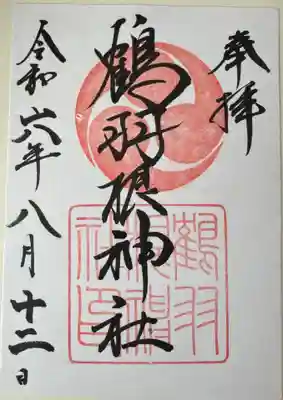 奉拝
鶴羽根神社
令和六年八月十二日
鶴羽
根神
社百